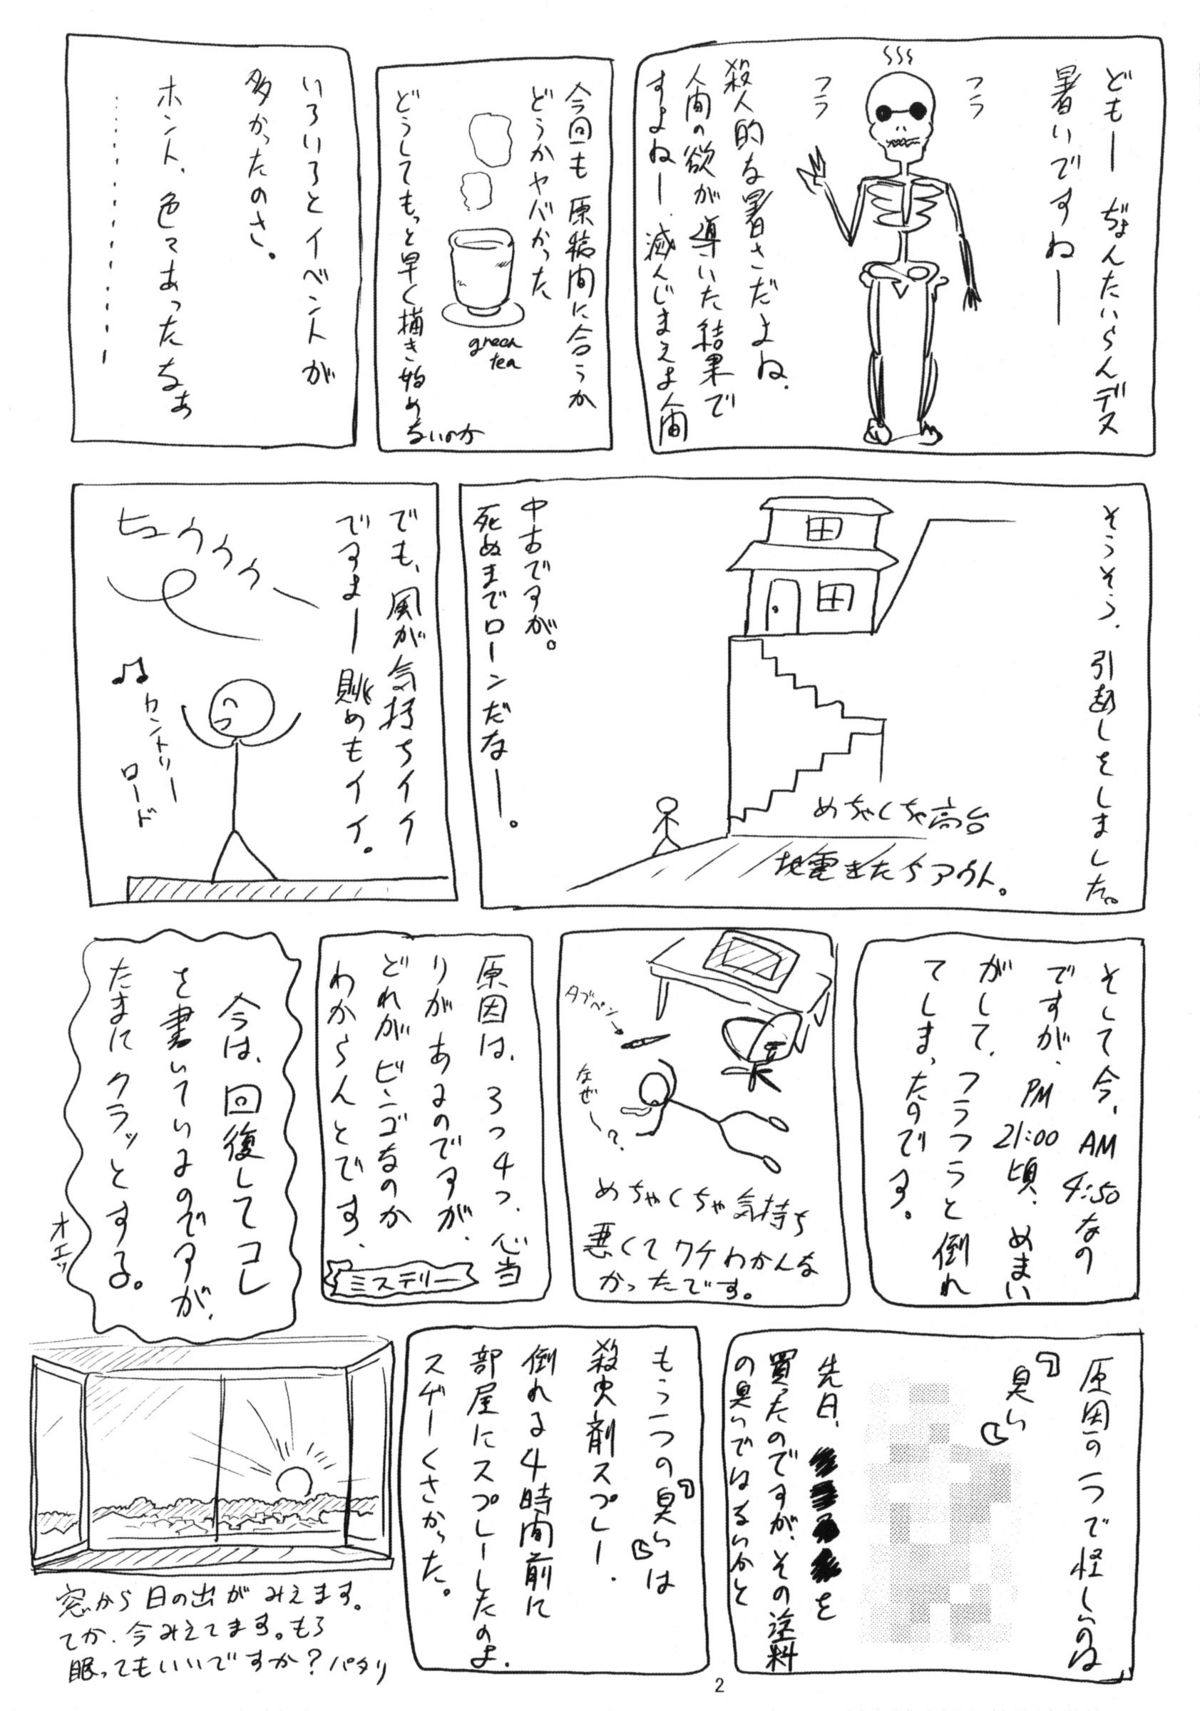 どもー ぢょんたいらんデス
暑いですねー
フラ
フラ
殺人的な暑さだよね、
人間の欲が導いた結果で
すよねー、滅んじまえよ人間
今回も原稿間に合うか
どうかヤバかった
green
tea
どうしてもっと早く描き始め
ないのか
いろいろとイベントが
多かったのさ。
ホント、色々あったなぁ
そうそう、引越しをしました。
めちゃくちゃ高台
地震きたらアウト。
中古ですが。
死ぬまでローンだなー。
でも、風が気持ちイイ
ですよー 眺めもイイ。
ヒュウウウー
♫カントリー
ロード
そして今、AM
4:50なの
ですが、PM
21:00頃、めまい
がして、フラフラと倒れ
てしまったのです。
タブペン
なぜ〜?
めちゃくちゃ気持ち
悪くてワケわかんな
かったです。
原因は、3つ4つ、心当
りがあるのですが、
どれがビンゴなのか
わからんとです、
ミステリー
今は、回復してコレ
を書いているのですが、
たまにクラッとする。
オエッ
原因の一つで怪しいのは
「臭い」
先日、
を
買ったのですが、その塗料
の臭いではないかと
もう一つの「臭い」は
殺虫剤スプレー、
倒れる4時間前に
部屋にスプレーしたのよ、
スゲーくさかった。
窓から日の出がみえます。
てか、今みえてます。もう
眠ってもいいですか?パタリ
2